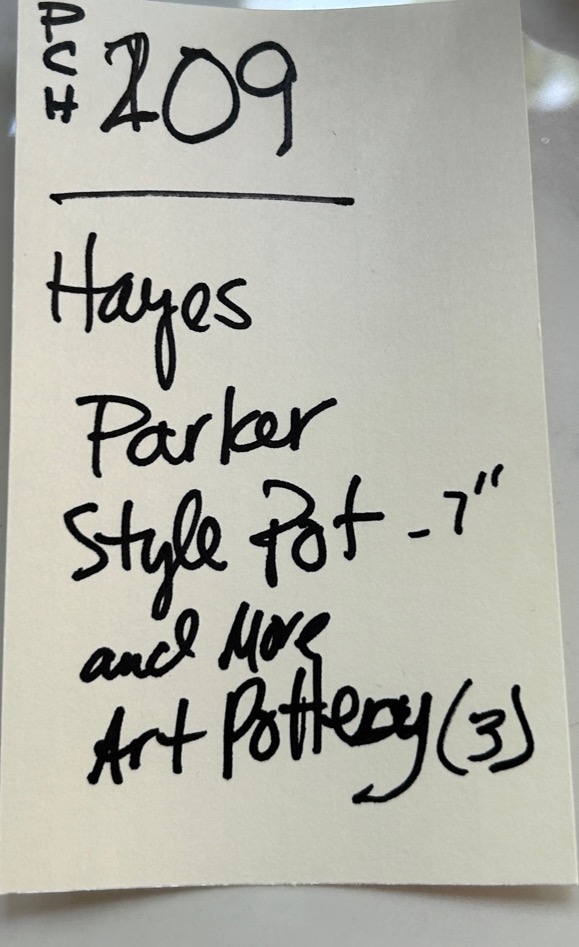 PCH 209
Hayes
Parker
Style Pot - 7"
and More
Art Pottery (3)